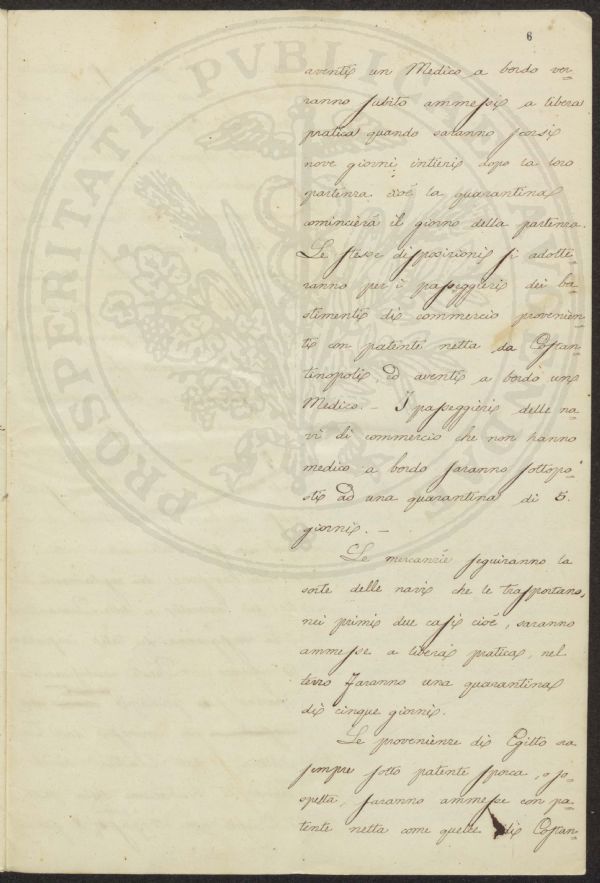 6
PROSPERITATI PVBLICAE
aventi un Medico a bordo ver-
ranno subito ammessi a libera
pratica quando saranno scorsi
nove giorni intieri dopo la loro
partenza xoè la quarantina
comincierà il giorno della partenza.
Le stesse disposizioni si adotte-
ranno per i passeggieri dei ba-
stimenti di commercio provenien-
ti con patente netta da Costan-
tinopoli ed aventi a bordo un
Medico. – I passeggieri delle na-
vi di commercio che non hanno
medico a bordo saranno sottopo-
sti ad una quarantina di 5.
giorni. –
Le mercanzie seguiranno la
sorte delle navi che le trasportano,
nei primi due casi cioè, saranno
ammesse a libera pratica, nel
terzo faranno una quarantina
di cinque giorni.
Le provenienze di Egitto ora
sempre sotto patente sporca, o so-
spetta, saranno ammesse con pa-
tente netta come quelle di Costan-